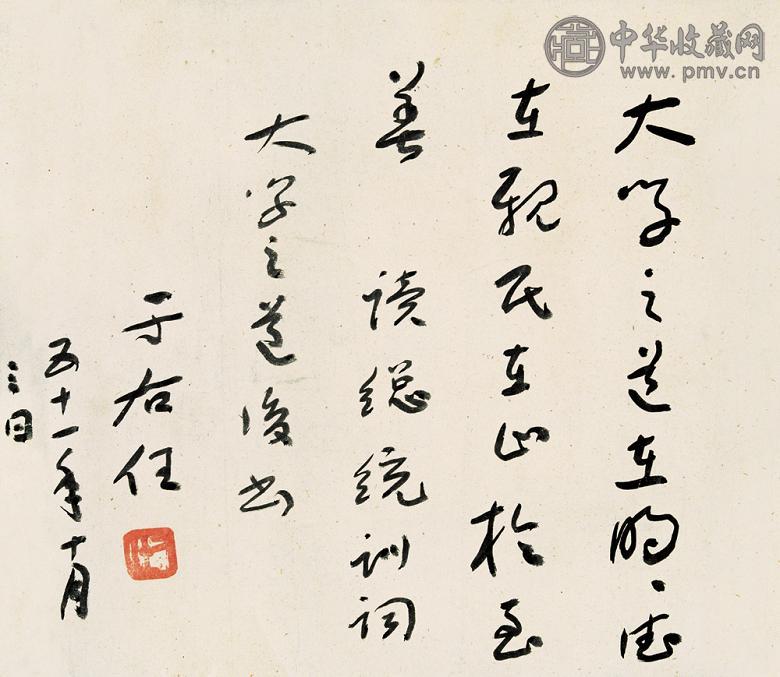 大学之道在明明德
在亲民在止於至
善 读总统训词
大学之道后书
于右任
五十一年十月
三日
中华收藏网
www.pmv.cn